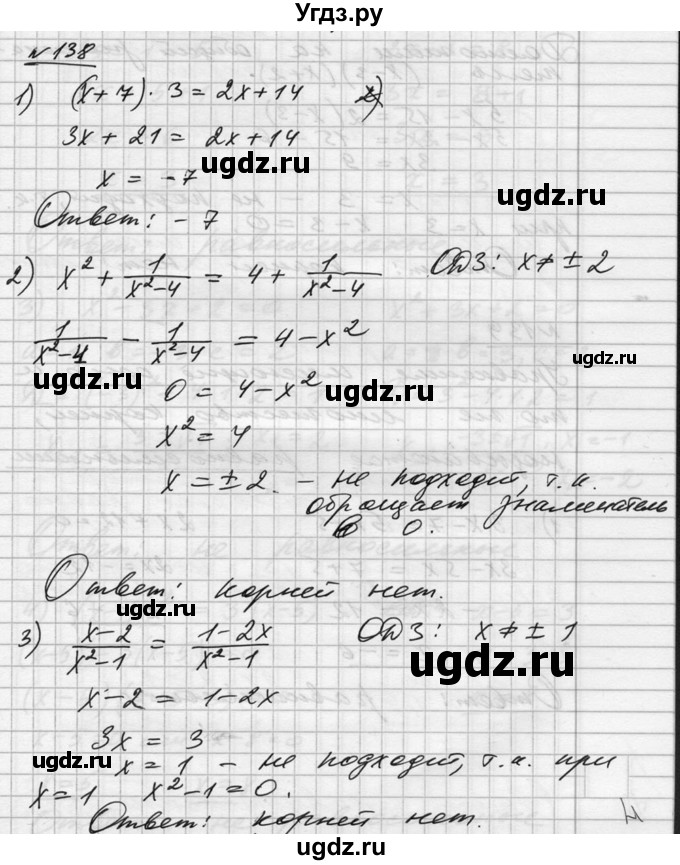 Угдз.ру
№138
1) (x+7)·3 = 2x+14
3x+21 = 2x+14
ugdz.ru
x = -7
ugdz.ru
Ответ: -7
2) x² + 1/(x²-4) = 4 + 1/(x²-4) ОДЗ: x≠±2
1/(x²-4) - 1/(x²-4) = 4-x²
ugdz.ru
ugdz.ru
0 = 4-x²
ugdz.ru
x² = 4
ugdz.ru
x = ±2. - не подходит, т.к.
обращает знаменатель
ugdz.ru
в 0.
Ответ: корней нет.
ugdz.ru
3) (x-2)/(x²-1) = (1-2x)/(x²-1) ОДЗ: x≠±1
ugdz.ru
x-2 = 1-2x
ugdz.ru
3x = 3
ugdz.ru
x = 1 - не подходит, т.к. при
x=1 x²-1=0.
ugdz.ru
Ответ: корней нет.
ugdz.ru
ugdz.ru